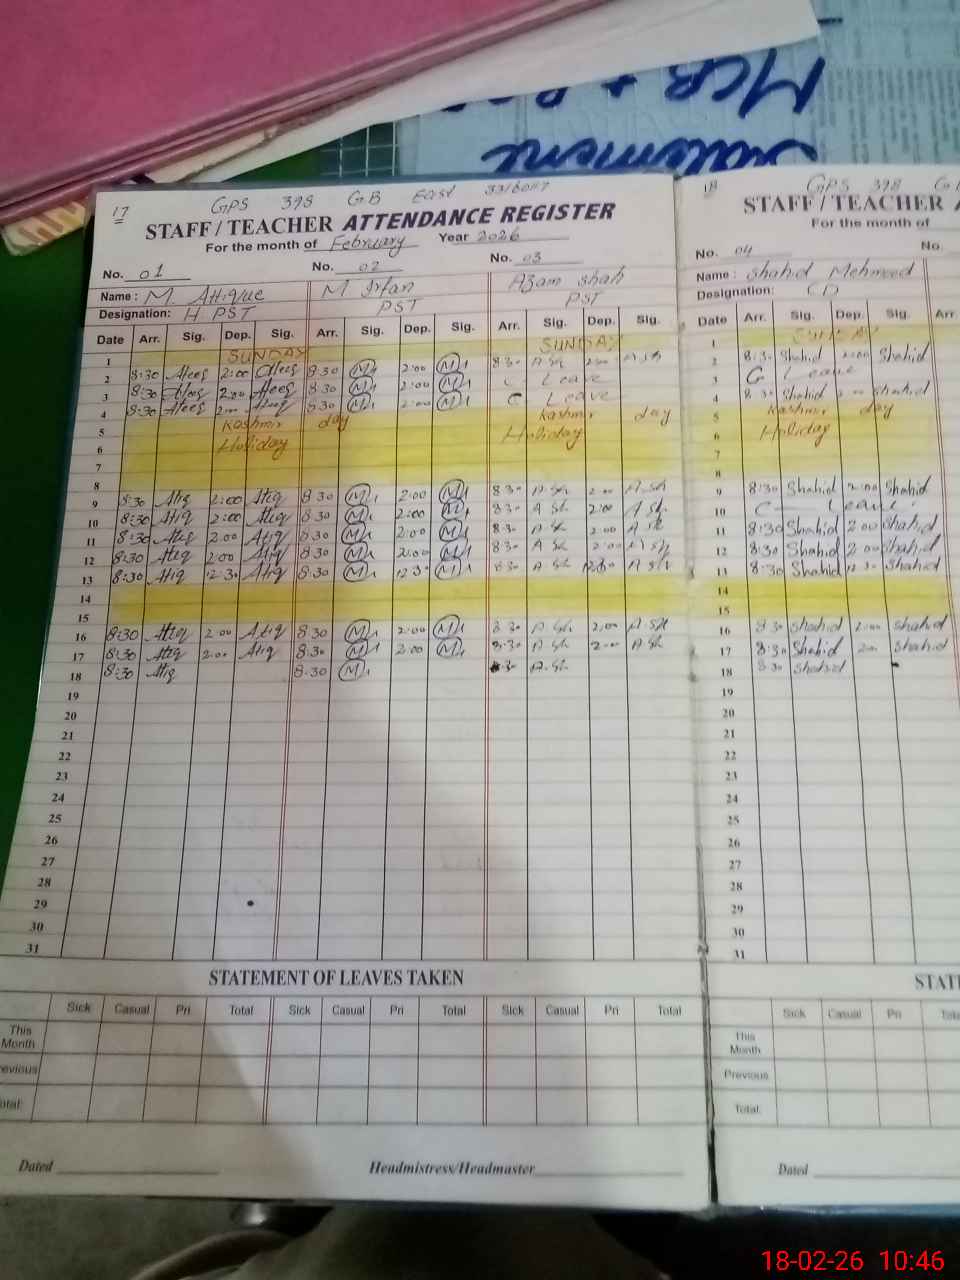 MCB
Statement
17
GPS 398 GB East 33/60117
STAFF / TEACHER ATTENDANCE REGISTER
For the month of February Year 2026
No. 01 No. 02 No. 03
Name : M. Attique M Irfan Azam Shah
Designation: H PST PST PST
Date Arr. Sig. Dep. Sig. Arr. Sig. Dep. Sig. Arr. Sig. Dep. Sig.
1 SUNDAY SUNDAY
2 8:30 2:00 8 30 M 2:00 M 8 30 A Sh 2:00 A Sh
3 8:30 2:00 8:30 M 2:00 M C Leave
4 8:30 2:00 8 30 M 2:00 M C Leave
5 Kashmir day Kashmir day
6 Holiday Holiday
7
8
9 8:30 Atiq 2:00 Atiq 8 30 M 2:00 M 8 30 A Sh 2:00 A Sh
10 8:30 Atiq 2:00 Atiq 8.30 M 2:00 M 8 30 A Sh 2:00 A Sh
11 8:30 Atiq 2:00 Atiq 8.30 M 2:00 M 8:30 A Sh 2:00 A Sh
12 8:30 Atiq 2:00 Atiq 8:30 M 2:00 M 8 30 A Sh 2:00 A Sh
13 8:30 Atiq 12 30 Atiq 8:30 M 12 30 M 8:30 A Sh 12:30 A Sh
14
15
16 8:30 Atiq 2:00 Atiq 8 30 M 2:00 M 8 30 A Sh 2:00 A Sh
17 8:30 Atiq 2:00 Atiq 8:30 M 2:00 M 8:30 A Sh 2:00 A Sh
18 8:30 Atiq 8:30 M 8:30 A Sh
19
20
21
22
23
24
25
26
27
28
29
30
31
STATEMENT OF LEAVES TAKEN
Sick Casual Pri Total Sick Casual Pri Total Sick Casual Pri Total
This Month
Previous
Total:
Dated Headmistress/Headmaster
18
GPS 398 G
STAFF / TEACHER A
For the month of
No. 04 No.
Name : Shahid Mehmood
Designation:
Date Arr. Sig. Dep. Sig. Arr.
1 SUNDAY
2 8:30 Shahid 2:00 Shahid
3 C Leave
4 8:30 Shahid 2:00 Shahid
5 Kashmir day
6 Holiday
7
8
9 8:30 Shahid 2:00 Shahid
10 C Leave
11 8:30 Shahid 2:00 Shahid
12 8:30 Shahid 2:00 Shahid
13 8:30 Shahid 12:30 Shahid
14
15
16 8 30 Shahid 2:00 Shahid
17 8:30 Shahid 2:00 Shahid
18 8:30 Shahid
19
20
21
22
23
24
25
26
27
28
29
30
31
STATE
Sick Casual Pri Total
This Month
Previous
Total:
Dated
18-02-26 10:46